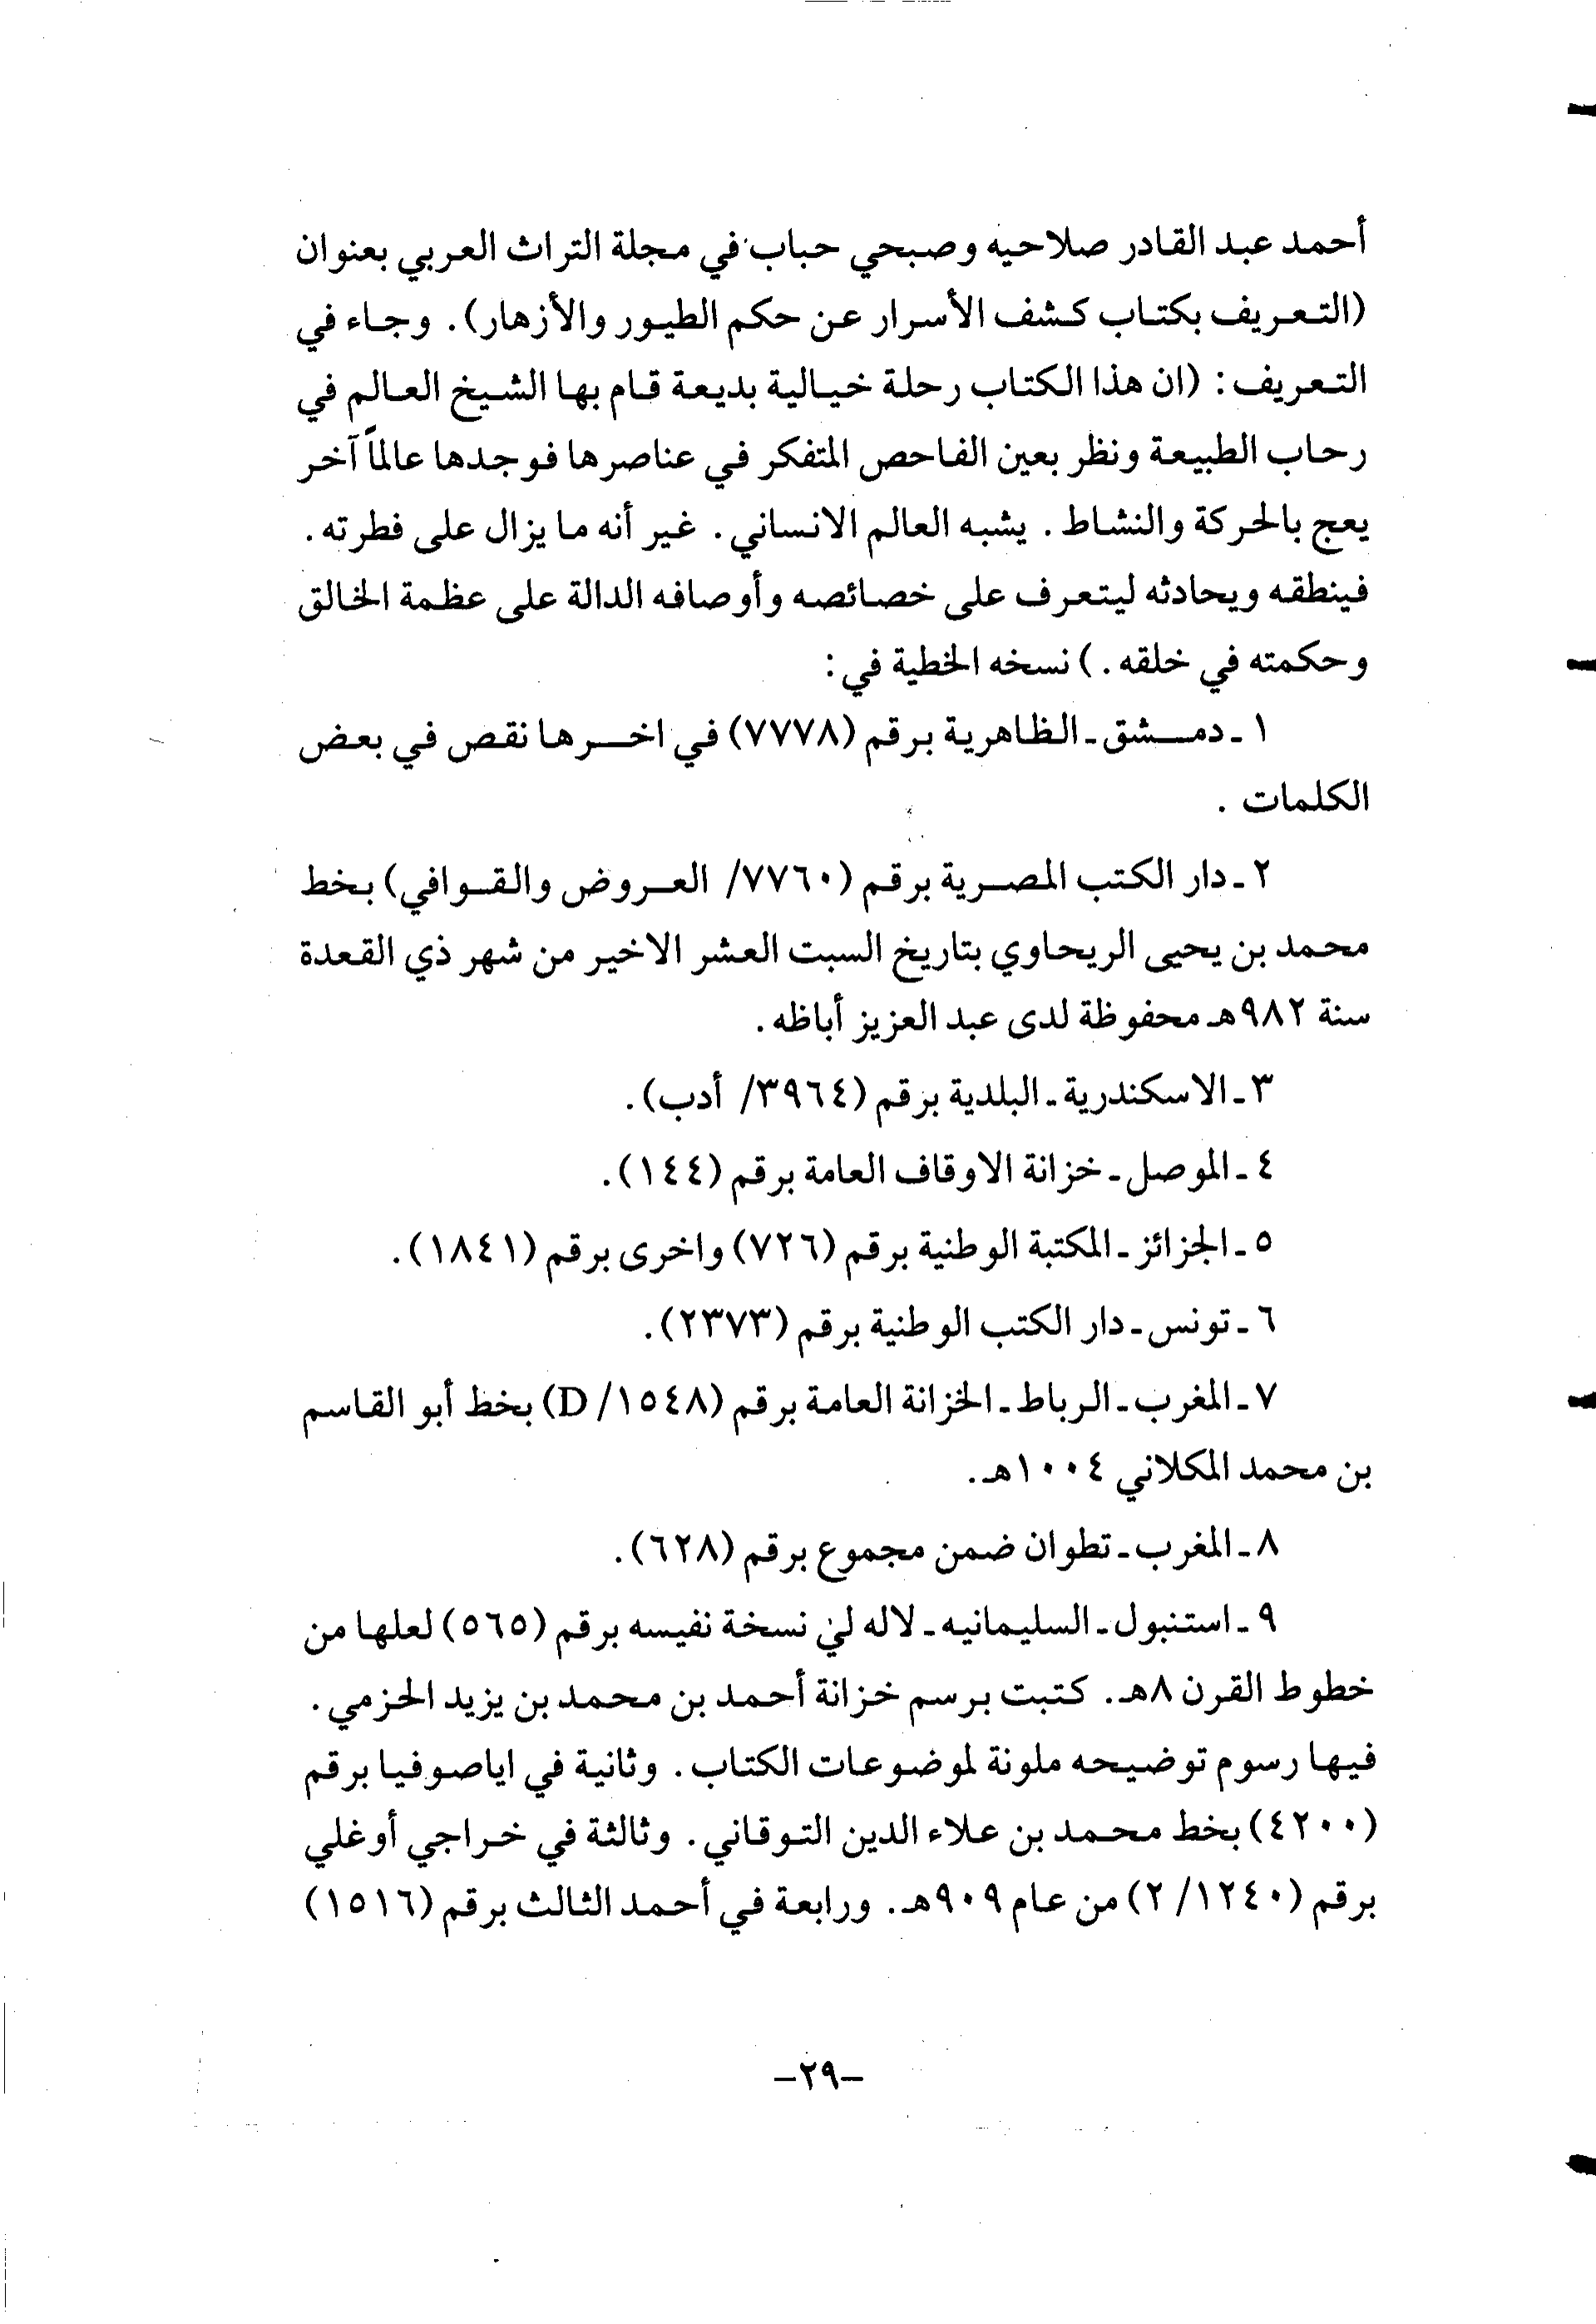 أحمد عبد القادر صلاحيه وصبحي حباب في مجلة التراث العربي بعنوان
(التعريف بكتاب كشف الأسرار عن حكم الطيور والأزهار). وجاء في
التعريف: (ان هذا الكتاب رحلة خيالية بديعة قام بها الشيخ العالم في
رحاب الطبيعة ونظر بعين الفاحص المتفكر في عناصرها فوجدها عالماً آخر
يعج بالحركة والنشاط. يشبه العالم الانساني. غير أنه ما يزال على فطرته.
فينطقه ويحادثه ليتعرف على خصائصه وأوصافه الدالة على عظمة الخالق
وحكمته في خلقه.) نسخه الخطية في:
١ ـ دمشق ـ الظاهرية برقم (٧٧٧٨) في اخرها نقص في بعض
الكلمات .
٢ ـ دار الكتب المصرية برقم (٧٧٦٠/ العروض والقوافي) بخط
محمد بن يحيى الريحاوي بتاريخ السبت العشر الاخير من شهر ذي القعدة
سنة ٩٨٢هـ محفوظة لدى عبد العزيز أباظه.
٣ ـ الاسكندرية ـ البلدية برقم (٣٩٦٤/ أدب).
٤ ـ الموصل ـ خزانة الاوقاف العامة برقم (١٤٤).
٥ ـ الجزائز ـ المكتبة الوطنية برقم (٧٢٦) واخرى برقم (١٨٤١).
٦ ـ تونس ـ دار الكتب الوطنية برقم (٢٣٧٣).
٧ ـ المغرب ـ الرباط ـ الخزانة العامة برقم (١٥٤٨/ D) بخط أبو القاسم
بن محمد المكلاني ١٠٠٤هـ.
٨ ـ المغرب ـ تطوان ضمن مجموع برقم (٦٢٨).
٩ ـ استنبول ـ السليمانيه ـ لاله لي نسخة نفيسه برقم (٥٦٥) لعلها من
خطوط القرن ٨هـ. كتبت برسم خزانة أحمد بن محمد بن يزيد الحزمي.
فيها رسوم توضيحه ملونة لموضوعات الكتاب. وثانية في اياصوفيا برقم
(٤٢٠٠) بخط محمد بن علاء الدين التوقاني. وثالثة في خراجي أوغلي
برقم (١٢٤٠/ ٢) من عام ٩٠٩هـ. ورابعة في أحمد الثالث برقم (١٥١٦)
–٢٩–